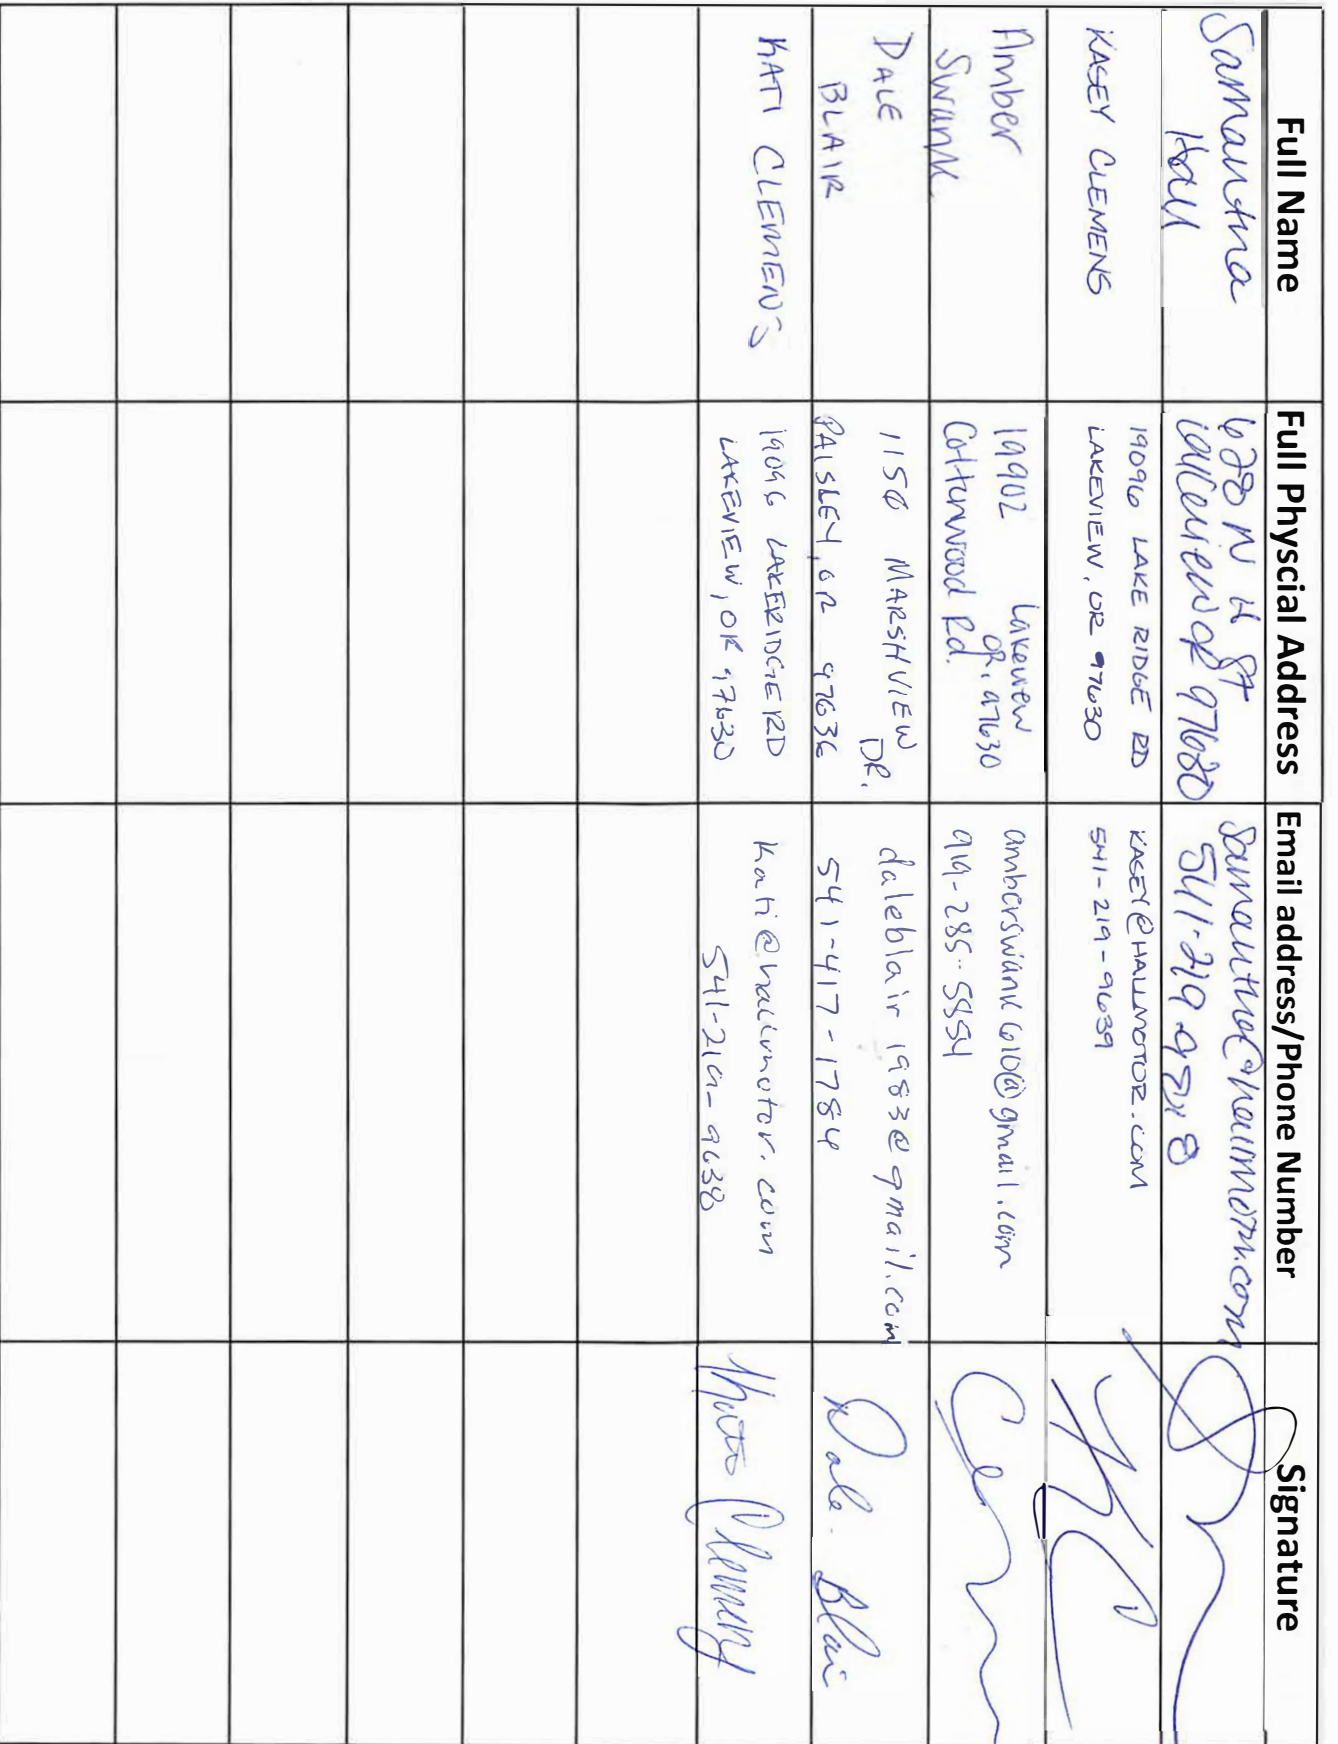 Full Name Full Physcial Address Email address/Phone Number Signature
Samantha
Hall
628 N H St
Lakeview OR 97630
Samantha@hallmotor.com
541-219-9718
KASEY CLEMENS
19096 LAKE RIDGE RD
LAKEVIEW, OR 97630
KASEY@HALLMOTOR.COM
541-219-9639
Amber
Swank
19902 Lakeview
OR, 97630
Cottonwood Rd.
amberswank610@gmail.com
919-285-5854
DALE
BLAIR
1150 MARSHVIEW
DR.
PAISLEY, OR 97636
daleblair1983@gmail.com
541-417-1784
Dale Blair
KATI CLEMENS
19096 LAKERIDGE RD
LAKEVIEW, OR 97630
kati@hallmotor.com
541-219-9638